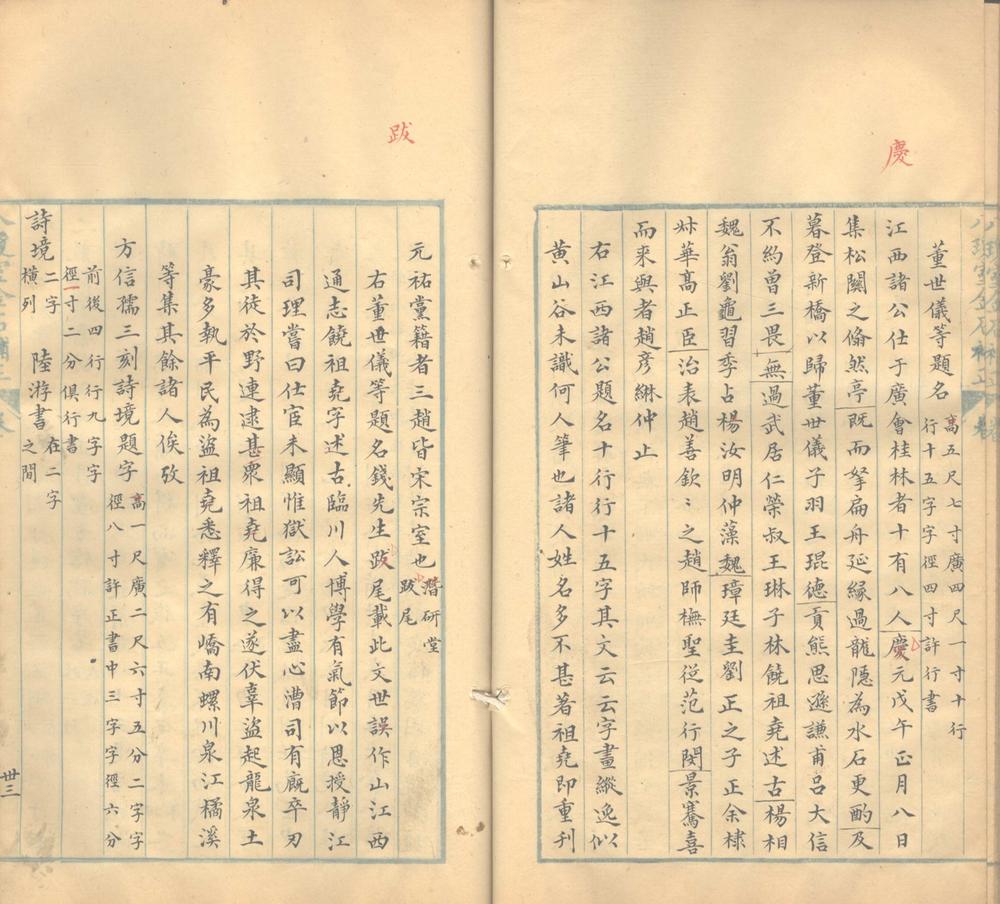 慶
董世儀等題名
高五尺七寸廣四尺一寸十行
行十五字字徑四寸許行書
江西諸公仕于廣會桂林者十有八人慶元戊午正月八日
集松關之翛然亭既而拏扁舟延緣過龍隱為水石更酌及
暮登新橋以歸董世儀子羽王琨德貢熊思遜謙甫呂大信
不約曾三畏無過武居仁榮叔王琳子林饒祖堯述古楊相
魏翁劉龜習季占楊汝明仲藻魏璋廷圭劉正之子正余棣
叔華高正臣治表趙善欽〻之趙師橅聖從范行閔景騫喜
而來與者趙彥綝仲止
右江西諸公題名十行行十五字其文云云字畫縱逸似
黃山谷未識何人筆也諸人姓名多不甚著祖堯即重刊
跋
元祐黨籍者三趙皆宋宗室也
潛研堂
跋尾
右董世儀等題名錢先生跋尾載此文世誤作山江西
通志饒祖堯字述古臨川人博學有氣節以恩授靜江
司理嘗曰仕宦未顯惟獄訟可以盡心漕司有廐卒刃
其徒於野連逮甚眾祖堯廉得之遂伏辜盜起龍泉土
豪多執平民為盜祖堯悉釋之有嶠南螺川泉江橘溪
等集其餘諸人俟攷
方信孺三刻詩境題字
高一尺廣二尺六寸五分二字字
徑八寸許正書中三字字徑六分
前後四行行九字字
徑一寸二分俱行書
詩境
二字
橫列
陸游書
在二字
之間
卅三